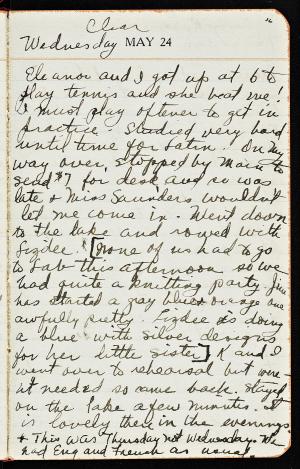 Clear
Wednesday MAY 24
Eleanor and I got up at 6 to
play tennis and she beat me!
I must play oftener to get in
practice. Studied very hard
until time for Latin. On my
way over, stopped by Main to
send $7 for desk and so was
late & Miss Saunders wouldn't
let me come in. Went down
to the lake and rowed with
Lizdee. [None of us had to go
to Lab this afternoon so we
had quite a knitting party. Jane
has started a gray blue & orange one
awfully pretty. Lizdee is doing
a blue with silver designs
for her little sister] K and I
went over to rehearsal but were
n't needed so came back. Stayed
on the lake a few minutes. It
is lovely there in the evenings.
& This was Thursday not Wednesday. We
had Eng and French as usual.